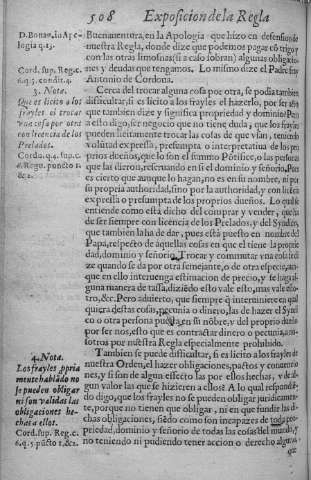 508 Exposicion de la Regla
D. Bonau. in Apologia q. 15.
Cord. sup. Reg. c. 6. q. 5. condit. 4.
3. Nota.
Que es licito a los frayles el trocar vna cosa por otra con licencia de los Prelados.
Cordo. q. 9. sup. c. 4. Reg. puncto 1. & 2.
4. Nota.
Los frayles propriamente hablãdo no se pueden obligar ni son validas las obligaciones hechas a ellos.
Cord. sup. Reg. c. 6. q. 5. pũcto 1. & 2.
Buenauentura, en la Apologia que hizo en defension de
nuestra Regla, donde dize que podemos pagar cõ trigo, y
con las otras limosnas (si a caso sobran) algunas obligacio
nes y deudas que tengamos. Lo mismo dize el Padre fray
Antonio de Cordoua.
Cerca del trocar alguna cosa por otra, se podia tambien
dificultar, si es licito a los frayles el hazerlo, por ser assi
que tambien dize y significa propriedad y dominio. Pero
a ello digo, ser negocio que no tiene duda, que los frayles
pueden licitamente trocar las cosas de que vsan, teniendo
volũtad expressa, presumpta o interpretatiua de los pro
prios dueños, que lo son el summo Põtifice, o las personas
que las dieron, reseruando en si el dominio y señorio. Pues
es cierto que aunque lo hagan, no es en su nombre, ni por
su propria authoridad, sino por la authoridad, y con licẽcia
expressa o presumpta de los proprios dueños. Lo qual se
entiende como està dicho del comprar y vender, que ha
de ser siempre con licencia de los Prelados, y del Syndico,
que tambien la ha de dar, pues està puesto en nombre del
Papa, respecto de aquellas cosas en que el tiene la proprie
dad, dominio y señorio. Trocar y commutar vna cosa se di
ze quando se da por otra semejante, o de otra especie, aun
que en ello interuenga estimacion de precio, y se haga al
guna manera de tassa, diziẽdo esto vale esto, mas vale aqueotro,
&c. Pero aduierto, que siempre q̃ interuiniere en qual
quiera destas cosas, pecunia o dinero, las de hazer el Syndi
co o otra persona puesta en su nõbre, y del proprio dueño
por ser nos, esto que es contractar dinero o pecunia, a nos
otros por nuestra Regla especialmente prohibido.
Tambien se puede dificultar, si es licito a los frayles de
nuestra Orden, el hazer obligaciones, pactos y concierto
nes, y si son de algun effecto las por ellos hechas, y de al
gun valor las que se hizieren a ellos? A lo qual respondiẽ
do digo, que los frayles no se pueden obligar juridicamen
te, porque no tienen que obligar, ni en que fundar las di
chas obligaciones, siẽdo como son incapaces de toda pro
priedad, dominio y señorio de todas las cosas del mundo, y
no teniendo ni pudiendo tener accion o derecho alguna,
que